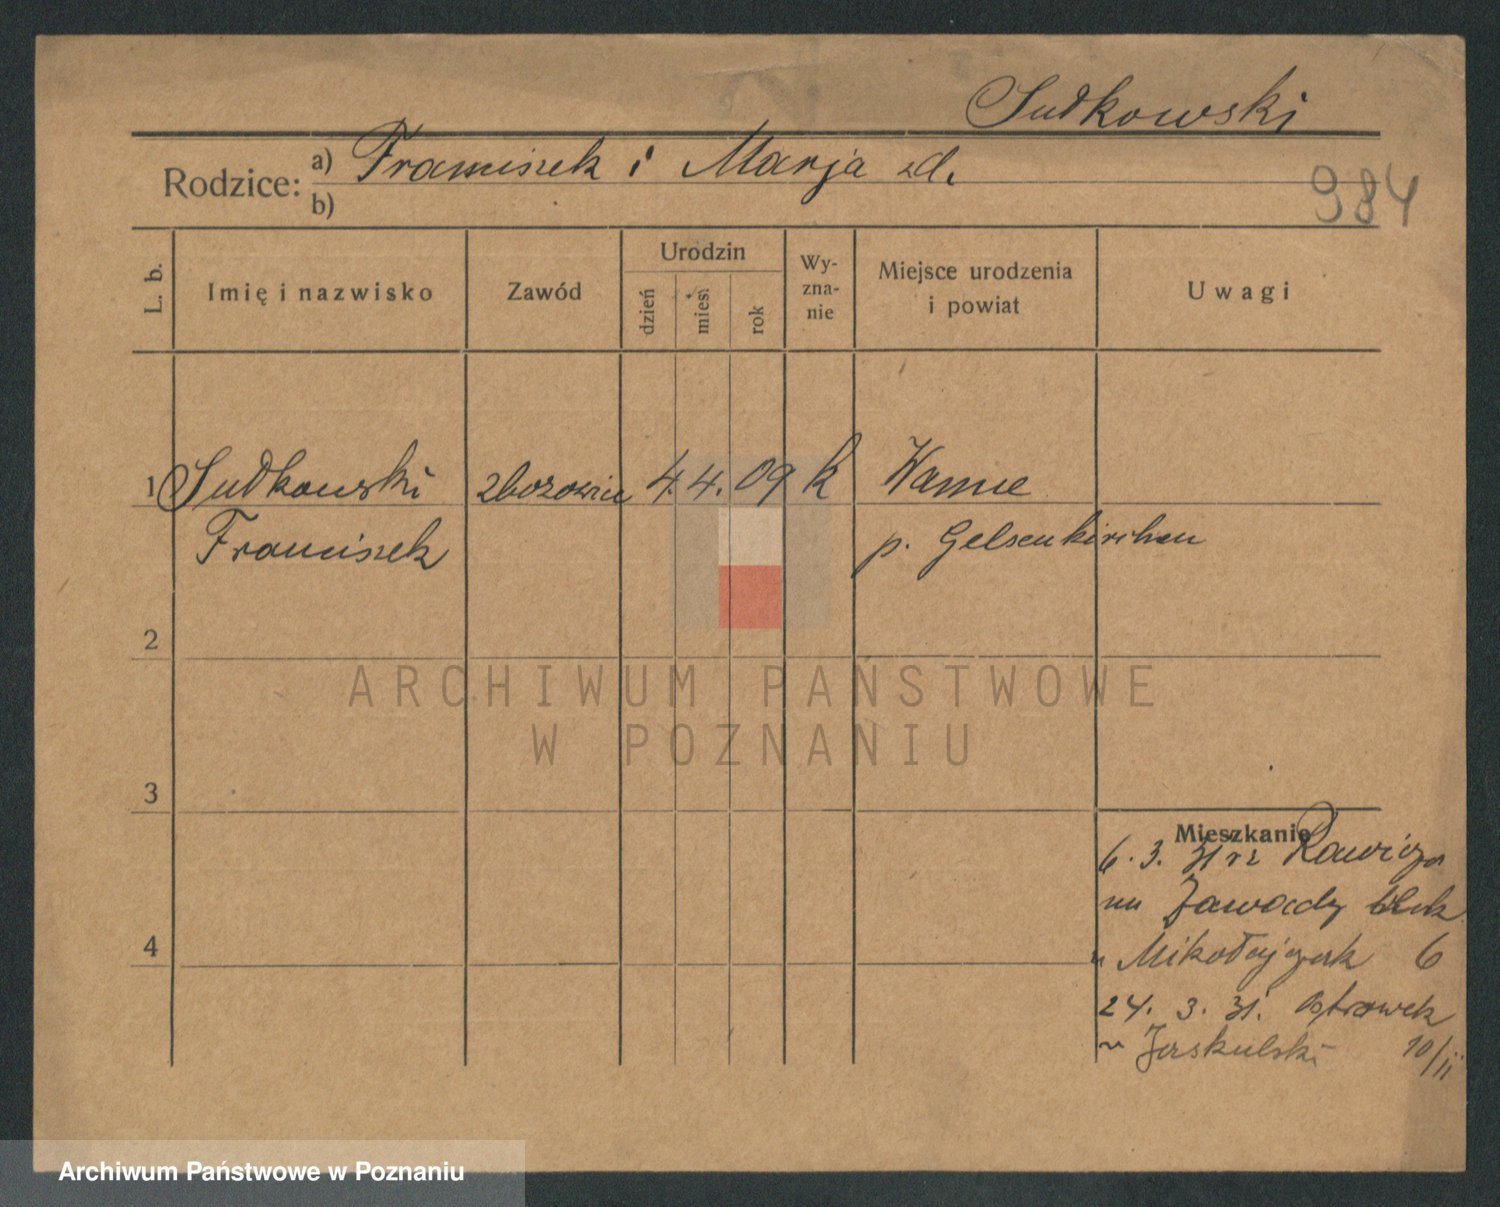 Sudkowski
Rodzice: a) Franciszek i Marja zd.
b)
984
L. b.
Imię i nazwisko
Zawód
Urodzin
dzień
mies.
rok
Wy-
zna-
nie
Miejsce urodzenia
i powiat
Uwagi
1 Sudkowski 4. 4. 09 k Wanne
Franciszek p. Gelsenkirchen
2
3
Mieszkanie
6. 3. 31 z Rawicza
na Zawady
u Mikołajczak 6
4
24. 3. 31. Ostrówek
u Jaskulski 10/II
ARCHIWUM PAŃSTWOWE
W POZNANIU
Archiwum Państwowe w Poznaniu